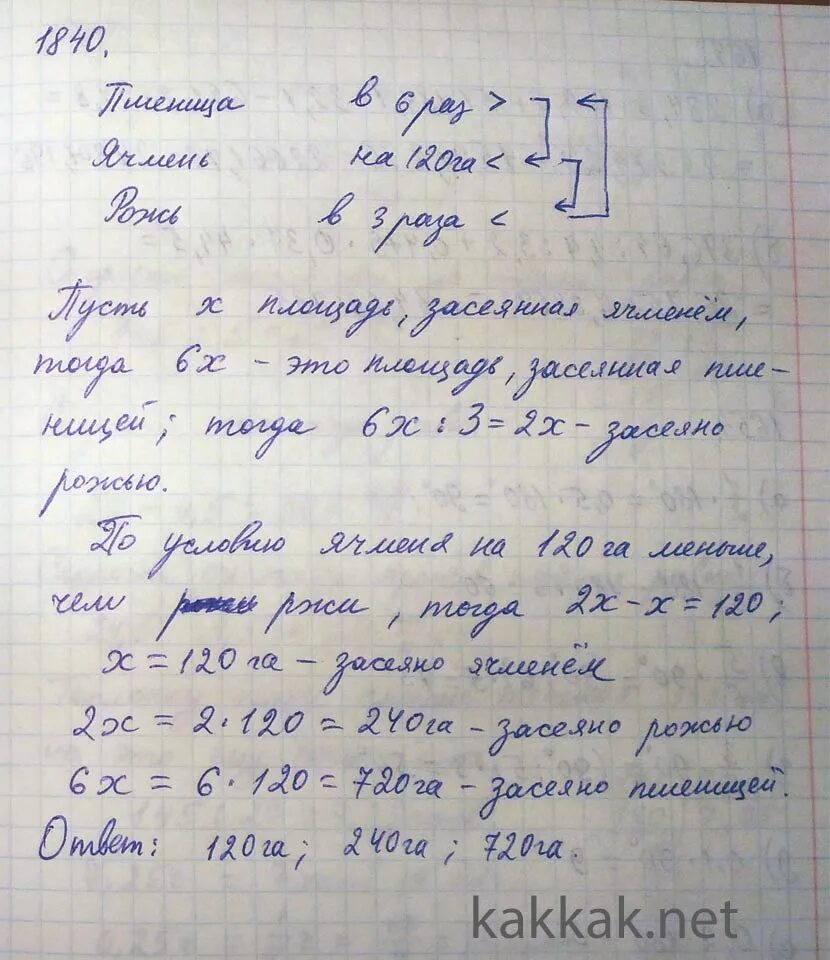 1840.
Пшеница в 6 раз >
Ячмень на 120га <
Рожь в 3 раза <
Пусть x площадь, засеянная ячменём,
тогда 6x - это площадь, засеянная пше-
ницей; тогда 6x : 3 = 2x - засеяно
рожью.
По условию ячменя на 120 га меньше,
чем ржи, тогда 2x - x = 120;
x = 120 га - засеяно ячменём
2x = 2 · 120 = 240га - засеяно рожью
6x = 6 · 120 = 720га - засеяно пшеницей.
Ответ: 120га; 240га; 720га.
kakkak.net